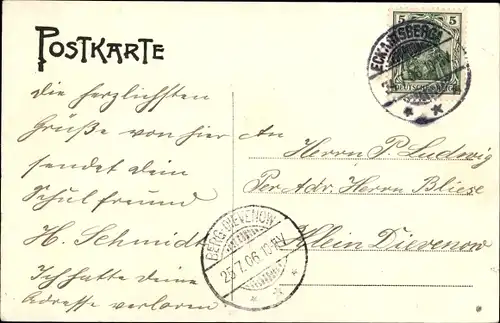 POSTKARTE
die herzlichsten
Grüße von hier
sendet dein
Schulfreund
H. Schmidt
Ich hatte deine
Adresse verloren.
5 5
DEUTSCHES REICH
ECKARTSBERGA
An
Herrn P Ludwig
Per Adr. Herrn Bliese
Klein Dievenow
BERG-DIEVENOW
25.7.06